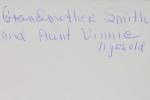 Grandmother Smith
and Aunt Vinnie
11 yrs old